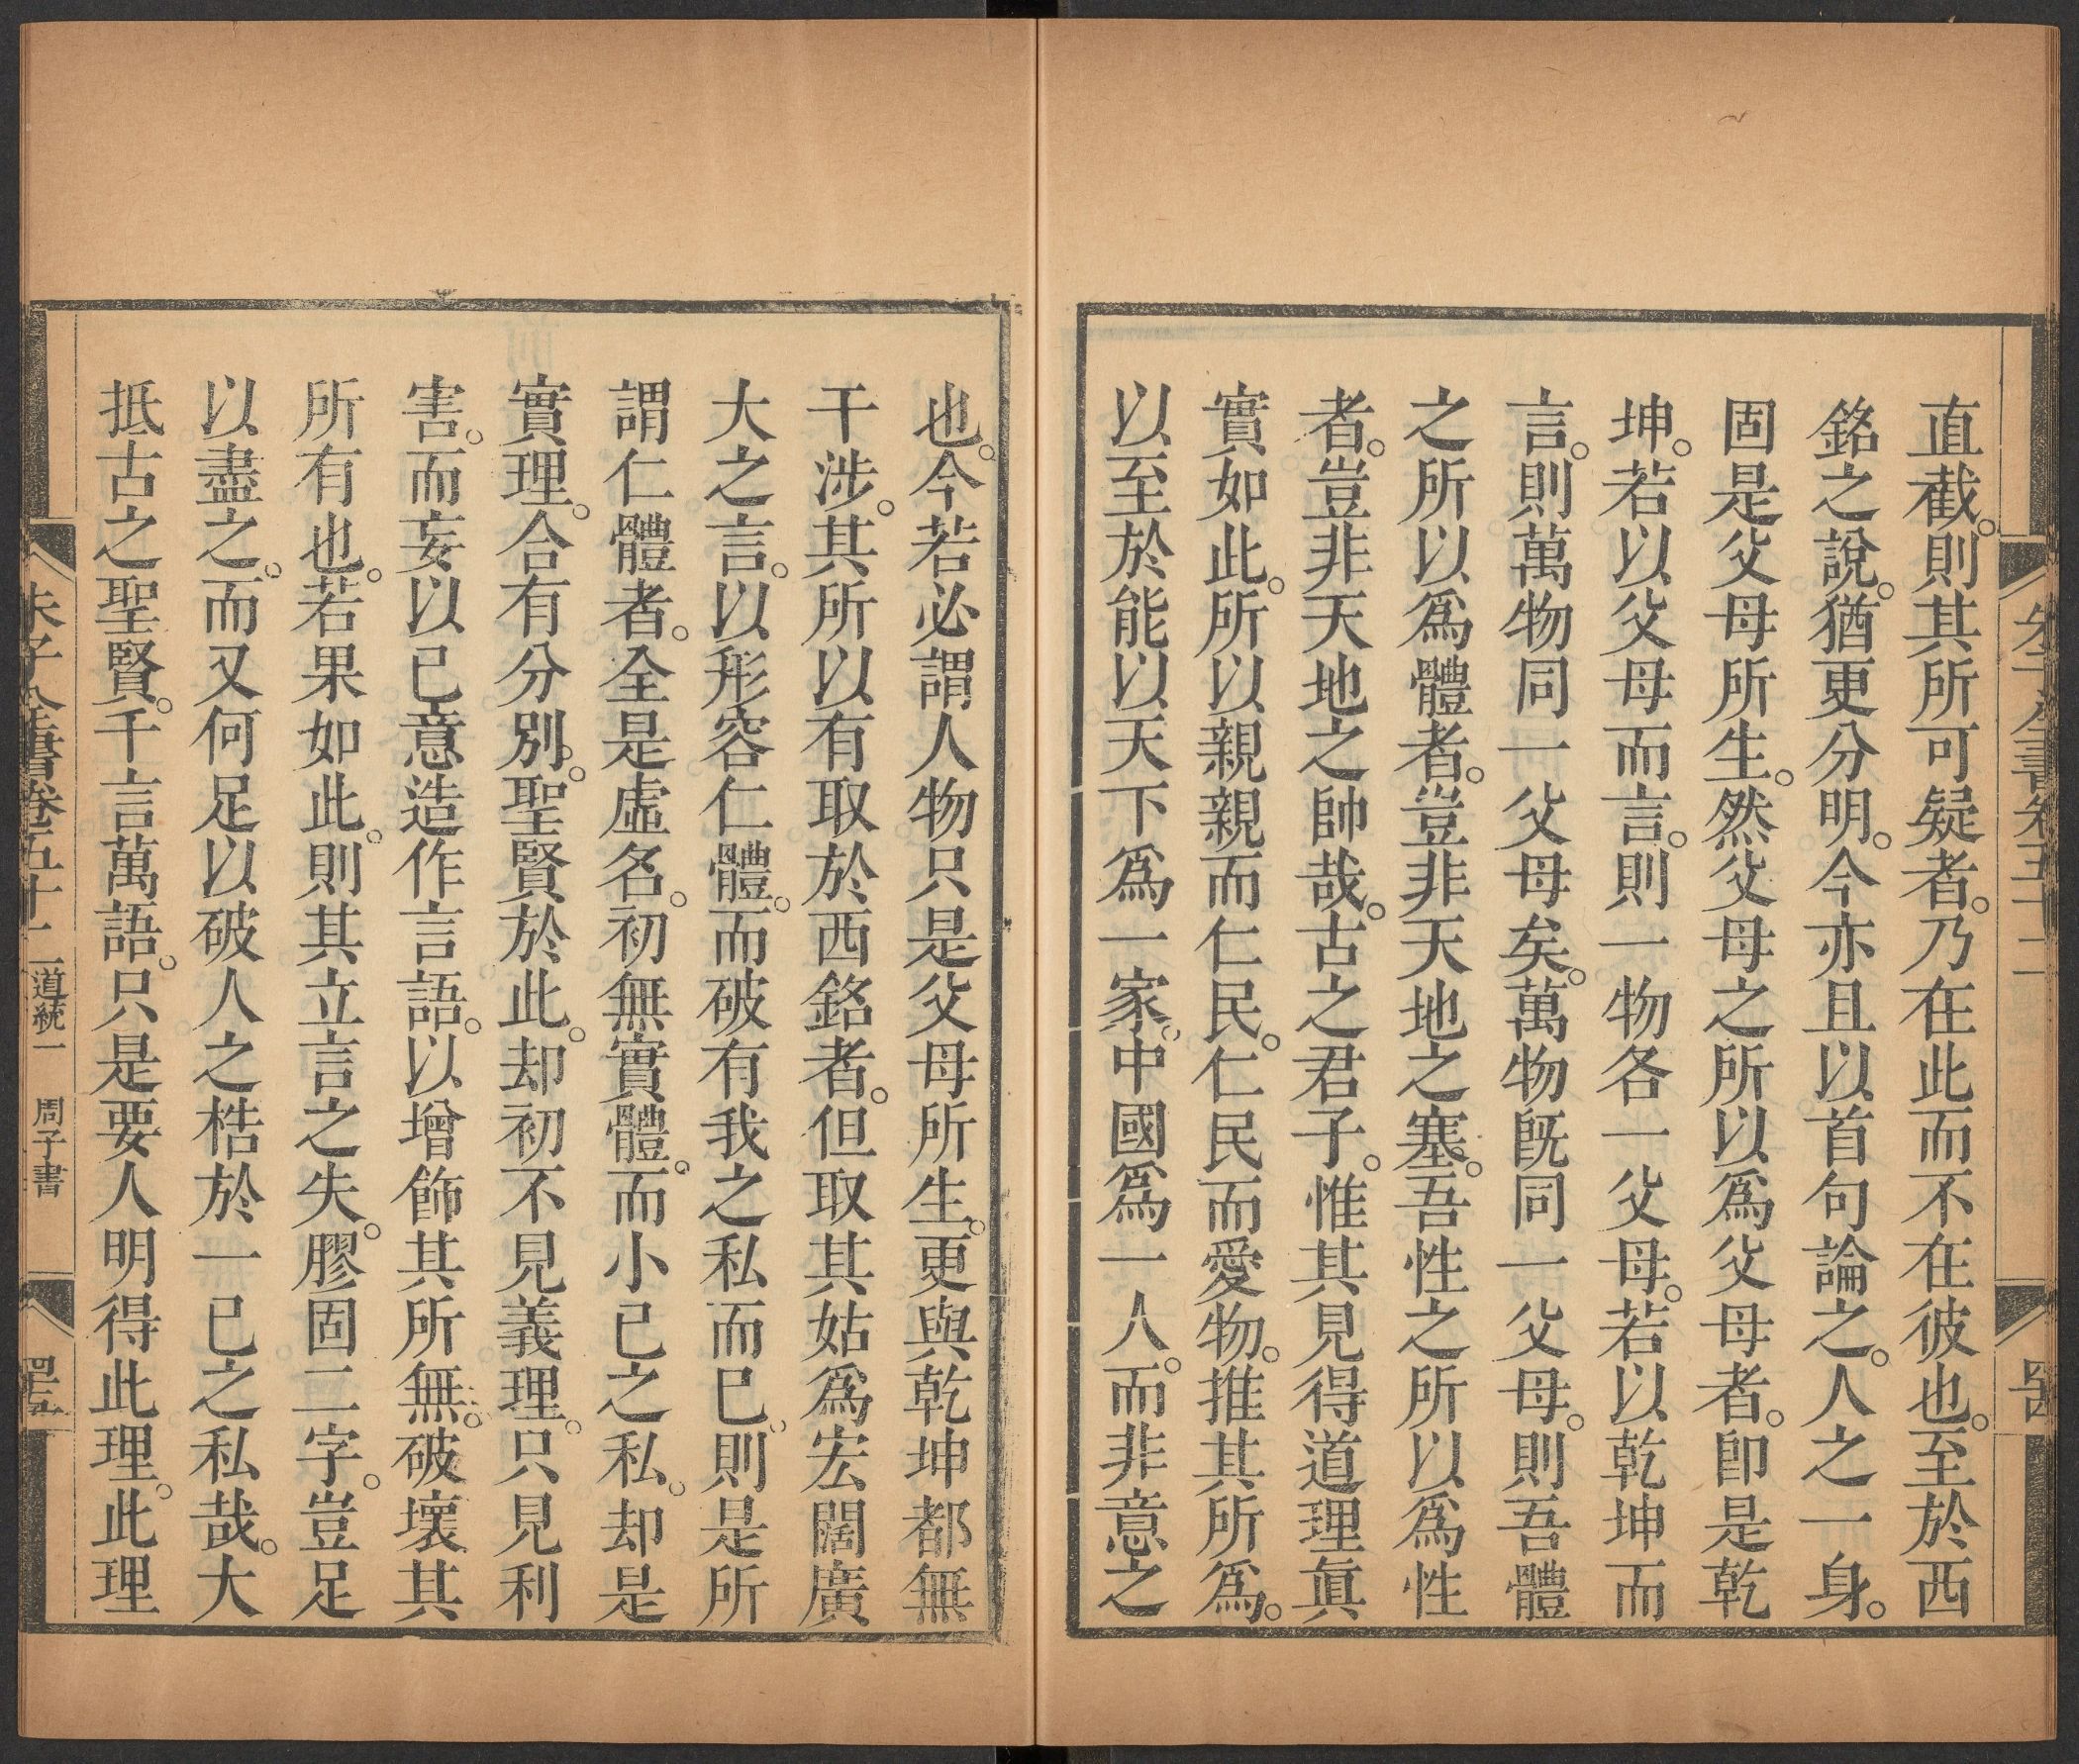 直截。則其所可疑者。乃在此而不在彼也。至於西
銘之說。猶更分明。今亦且以首句論之。人之一身。
固是父母所生。然父母之所以爲父母者。卽是乾
坤。若以父母而言。則一物各一父母。若以乾坤而
言。則萬物同一父母矣。萬物旣同一父母。則吾體
之所以爲體者。豈非天地之塞。吾性之所以爲性
者。豈非天地之帥哉。古之君子。惟其見得道理眞
實如此。所以親親而仁民。仁民而愛物。推其所爲。
以至於能以天下爲一家。中國爲一人。而非意之
也。今若必謂人物只是父母所生。更與乾坤都無
干涉。其所以有取於西銘者。但取其姑爲宏闊廣
大之言。以形容仁體。而破有我之私而已。則是所
謂仁體者。全是虛名。初無實體。而小已之私。却是
實理。合有分別。聖賢於此。却初不見義理。只見利
害。而妄以已意造作言語。以增飾其所無。破壞其
所有也。若果如此。則其立言之失。膠固二字。豈足
以盡之。而又何足以破人之梏於一已之私哉。大
抵古之聖賢。千言萬語。只是要人明得此理。此理
朱子全書卷五十二 道統一 周子書